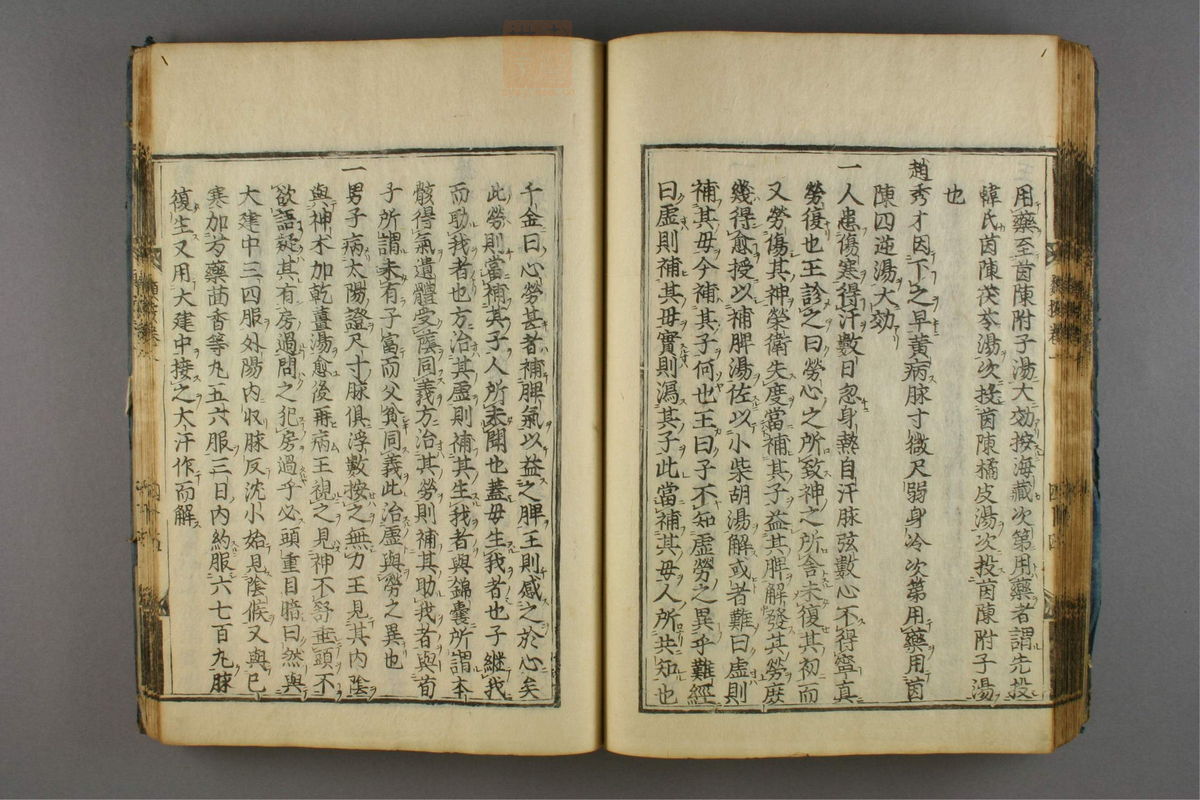 用藥至茵陳附子湯大効按海藏次第用藥者謂先投
韓氏茵陳茯苓湯次投茵陳橘皮湯次投茵陳附子湯
也
趙秀才因下之早黃病脉寸微尺弱身冷次第用藥用茵
陳四逆湯大効
一人患傷寒得汗數日忽身熱自汗脉弦數心不得寧真
勞復也王診之曰勞心之所致神之所舍未復其初而
又勞傷其神榮衛失度當補其子益其脾解發其勞庶
幾得愈授以補脾湯佐以小柴胡湯解或者難曰虛則
補其母今補其子何也王曰子不知虛勞之異乎難經
曰虛則補其母實則瀉其子此當補其母人所共知也
千金曰心勞甚者補脾氣以益之脾王則感之於心矣
此勞則當補其子人所未聞也蓋母生我者也子繼我
而助我者也方治其虛則補其生我者與錦囊所謂本
骸得氣遺體受蔭同義方治其勞則補其助我者與荀
子所謂未有子富而父貧同義此治虛與勞之異也
一男子病太陽證尺寸脉俱浮數按之無力王見其內陰
與神朮加乾薑湯愈後再病王視之見神不舒垂頭不
欲語疑其有房過問之犯房過乎必頭重目暗曰然與
大建中三四服外陽內収脉反沈小始見陰候又與已
寒加芍藥茴香等丸五六服三日內約服六七百丸脉
復生又用大建中接之大汗作而解